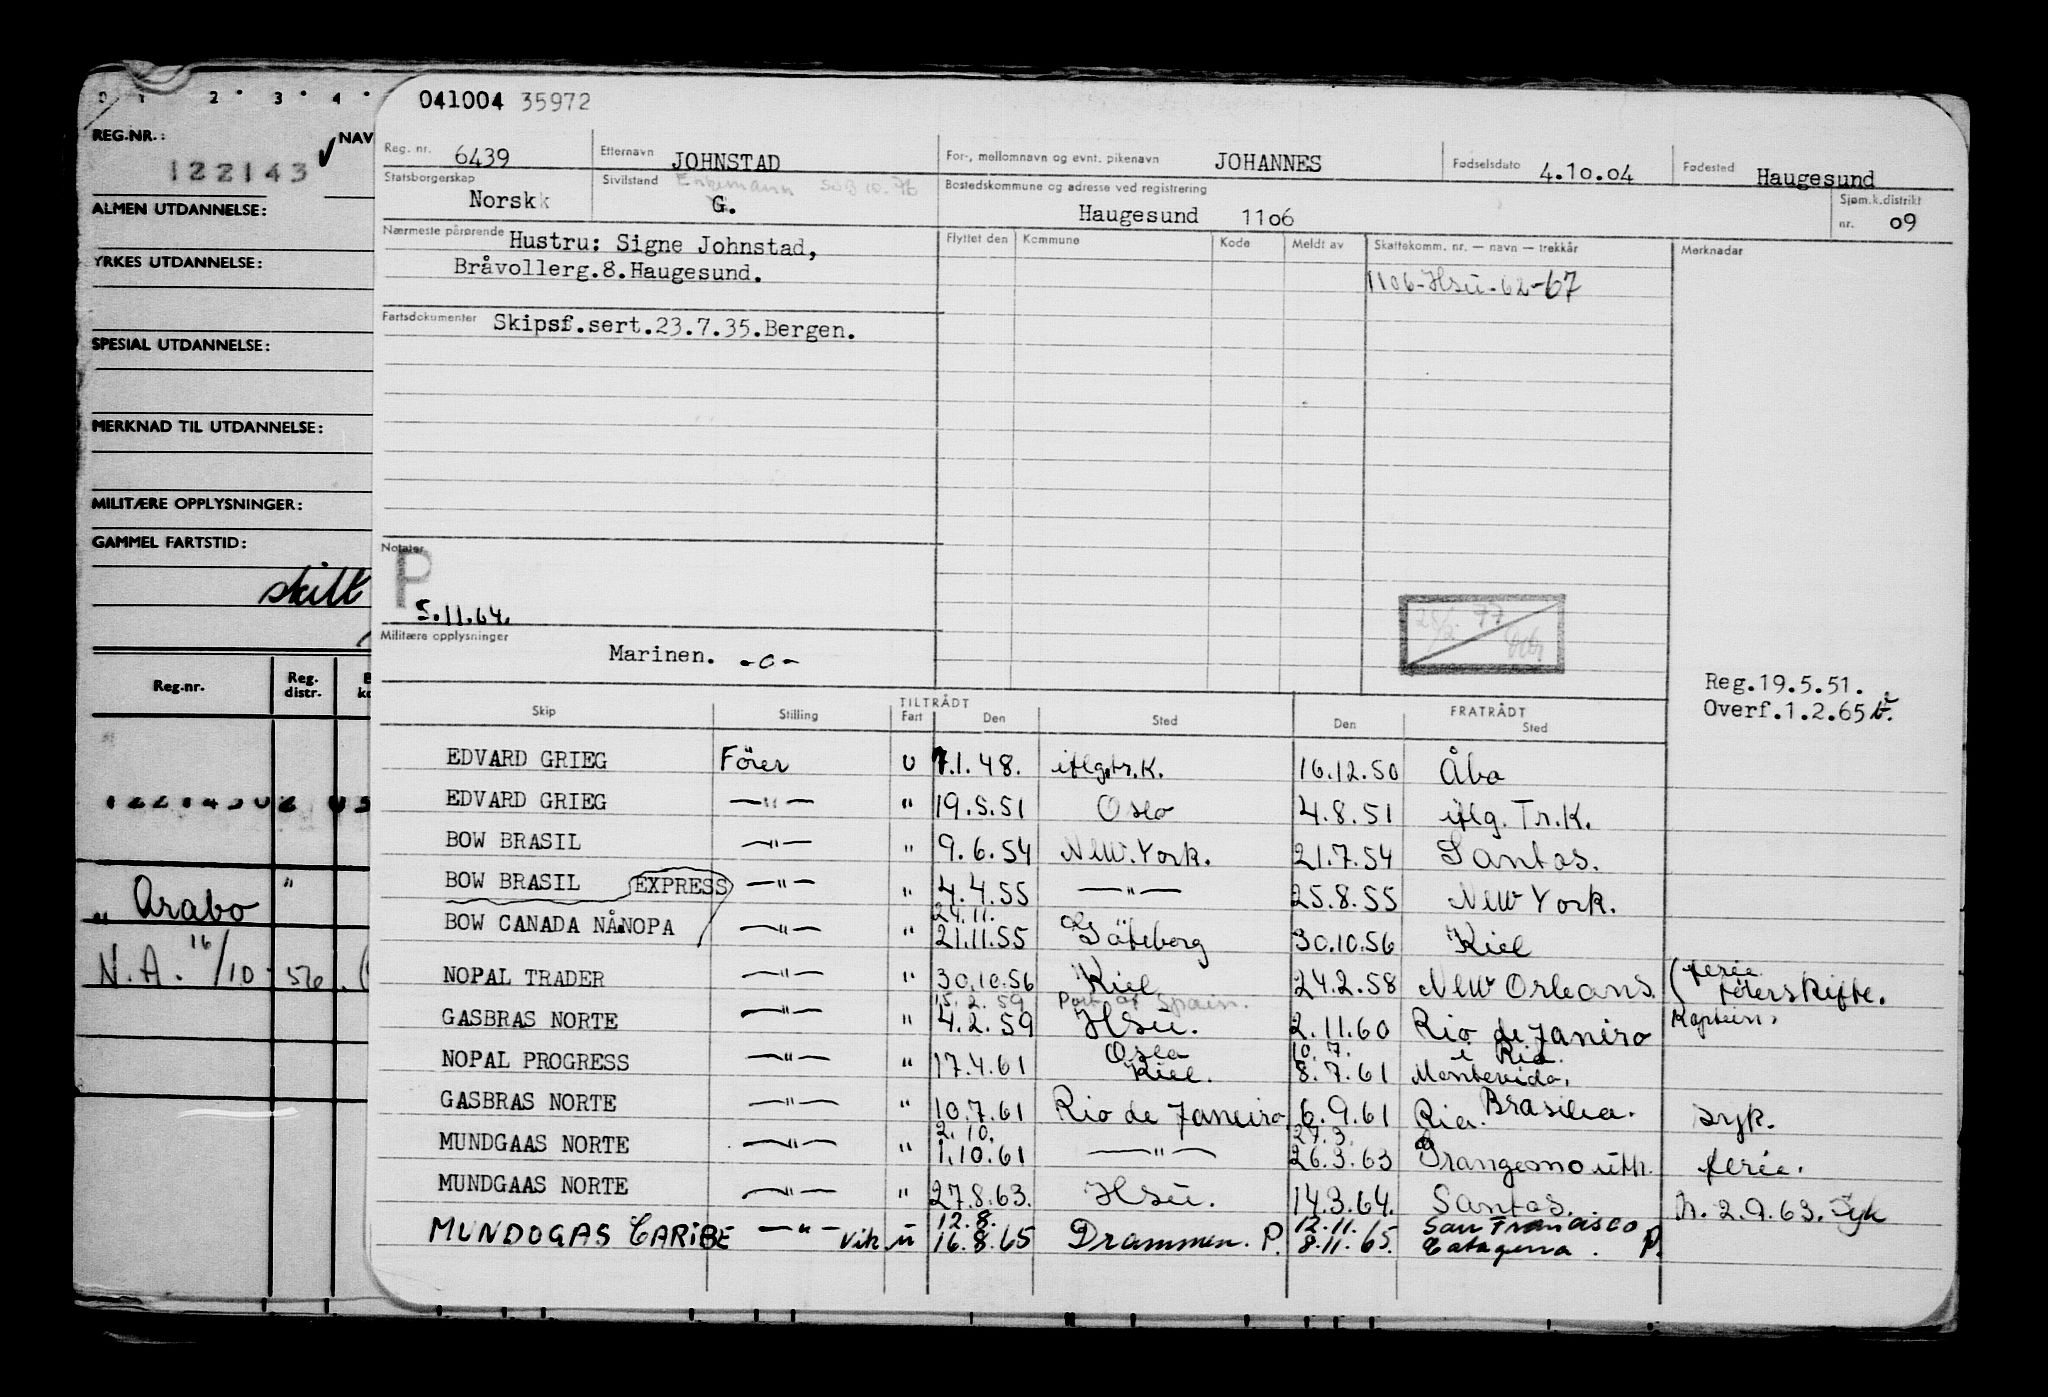 0 1 2 3 4
REG.NR.:
NAV
122143
ALMEN UTDANNELSE:
YRKES UTDANNELSE:
SPESIAL UTDANNELSE:
MERKNAD TIL UTDANNELSE:
MILITÆRE OPPLYSNINGER:
GAMMEL FARTSTID:
skilt
Reg.nr. Reg. distr.
" Arabo "
N.A. 16/10
041004 35972
Reg. nr. 6439 Etternavn JOHNSTAD For-, mellomnavn og evnt. pikenavn JOHANNES Fødselsdato 4.10.04 Fødested Haugesund
Statsborgerskap Norsk Sivilstand Enkemann G. Bostedskommune og adresse ved registrering Haugesund 1106 Sjøm.k.distrikt nr. 09
Nærmeste pårørende Hustru: Signe Johnstad,
Bråvollerg.8.Haugesund.
Flyttet den Kommune Kode Meldt av Skattekomm. nr. — navn — trekkår Merknader
1106-Hsu-62-67
Fartsdokumenter Skipsf.sert.23.7.35.Bergen.
Notater
P
5.11.64.
Militære opplysninger Marinen. -o-
Reg.19.5.51.
Overf.1.2.65
TILTRÅDT FRATRÅDT
Skip Stilling Fart Den Sted Den Sted
EDVARD GRIEG Förer U 7.1.48. iflg.tr.K. 16.12.50 Åbo
EDVARD GRIEG —"— " 19.5.51 Oslo 4.8.51 iflg. Tr.K.
BOW BRASIL —"— " 9.6.54 New.York. 21.7.54 Santos.
BOW BRASIL EXPRESS —"— " 4.4.55 —"— 25.8.55 New York.
24.11.
BOW CANADA NÅ NOPA —"— " 21.11.55 Göteborg 30.10.56 Kiel
NOPAL TRADER —"— " 30.10.56 Kiel 24.2.58 New Orleans. (ferie
15.2.59 Port of Spain.
GASBRAS NORTE —"— " 4.2.59 Hsu. 2.11.60 Rio de Janeiro
Oslo 10.7. i Rio.
NOPAL PROGRESS —"— " 17.4.61 Kiel. 8.7.61 Montevido.
GASBRAS NORTE —"— " 10.7.61 Rio de Janeiro 6.9.61 Rio. Brasilia. syk.
2.10. 27.3.
MUNDGAAS NORTE —"— " 1.10.61 —"— 26.3.63 Grangemouth. ferie.
MUNDGAAS NORTE —"— " 27.8.63. Hsu. 14.3.64. Santos. 2.9.63. Syk
12.8. 12.11. San Francisco
MUNDOGAS CARIBE —"— vik u 16.8.65 Drammen. P. 8.11.65. P.